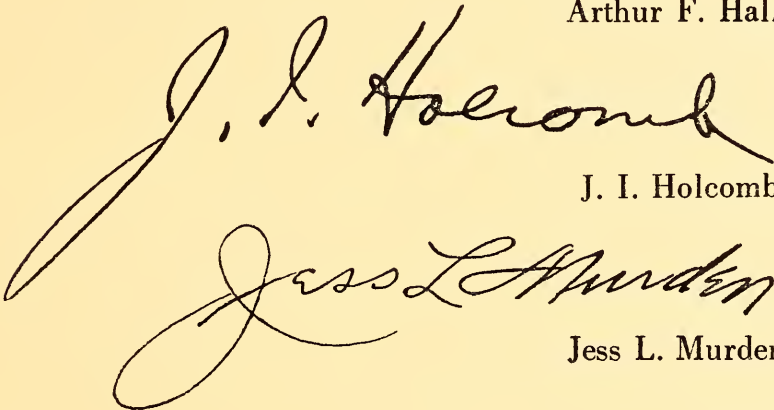 Arthur F. Hal
J. I. Holcomb
J. I. Holcomb
Jess L Murden
Jess L. Murden